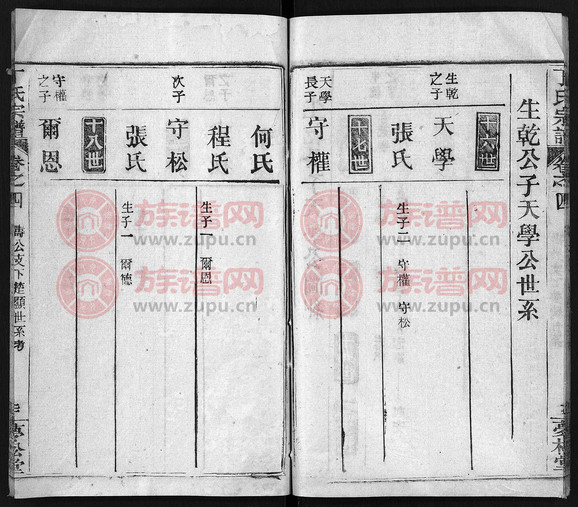 丁氏宗譜 卷之四
生乾公子天學公世系
十六世
生乾之子
天學
張氏
生子二 守權 守松
十七世
天學長子
守權
何氏
程氏
生子一 爾恩
次子
守松
張氏
生子一 爾德
十八世
守權之子
爾恩
丁氏宗譜 卷之四
公支下楚顯世系考
夢松堂
族谱网
www.zupu.cn
族谱网
www.zupu.cn
族谱网
www.zupu.cn
族谱网
www.zupu.cn